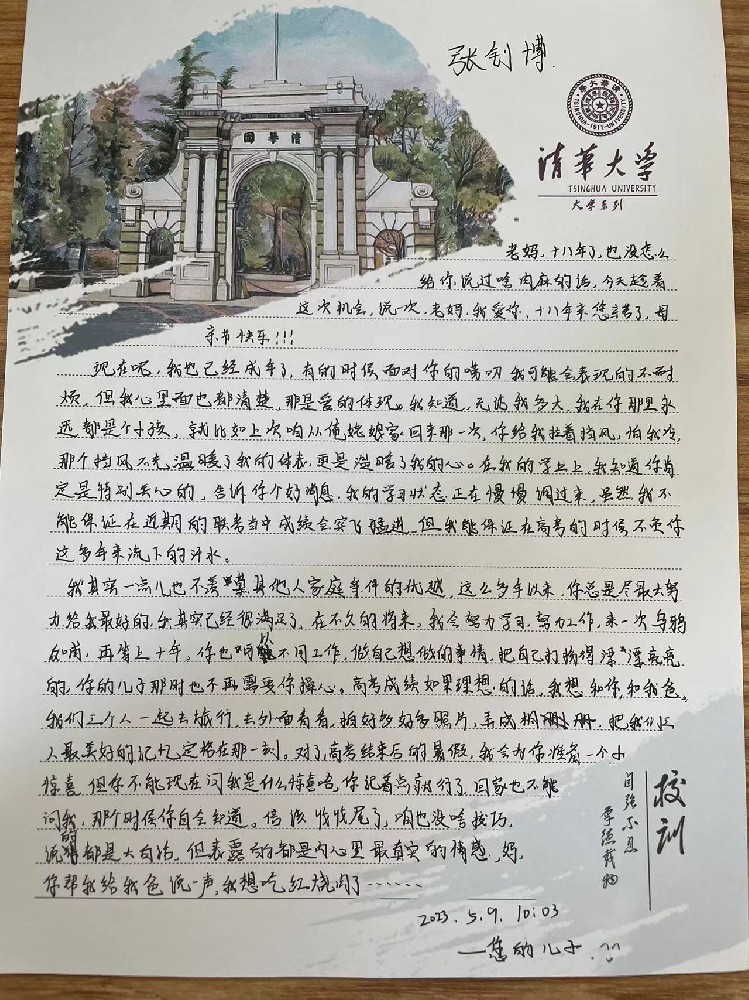 张钊博
清华园
清华大学
TSINGHUA UNIVERSITY
大学系列
老妈，十八年了，也没怎么
给你说过啥肉麻的话，今天趁着
这次机会，说一次，老妈，我爱你，十八年来您辛苦了，母
亲节快乐!!!
现在呢，我也已经成年了，有的时候面对你的唠叨我可能会表现的不耐
烦，但我心里面也都清楚，那是爱的体现。我知道，无论我多大，我在你那里永
远都是个小孩，就比如上次咱从俺姥娘家回来那一次，你给我拉着挡风，怕我冷，
那个挡风不光温暖了我的体表，更是温暖了我的心。在我的学业上，我知道你肯
定是特别关心的，告诉你个好消息，我的学习状态正在慢慢调过来，虽然我不
能保证在近期的联考当中成绩会突飞猛进，但我能保证在高考的时候不负你
这多年来流下的汗水。
我其实一点儿也不羡慕其他人家庭条件的优越，这么多年以来，你总是尽最大努
力给我最好的，我其实已经很满足了，在不久的将来，我会努力学习，努力工作，来一次乌鸦
反哺，再等上十年，你也可以不用工作，做自己想做的事情，把自己打扮得漂漂亮亮
的，你的儿子那时也不再需要你操心。高考成绩如果理想的话，我想和你，和我爸，
我们三个人一起去旅行，去外面看看，拍好多好多照片，弄成相册，把我们三
人最美好的记忆定格在那一刻。对了，高考结束后的暑假，我会为你准备一个小
惊喜，但你不能现在问我是什么惊喜哈，你记着点就行了，回家也不能
问我，那个时候你自会知道。信该收收尾了，咱也没啥技巧，
说的都是大白话，但表露的都是内心里最真实的情感，妈，
你帮我给我爸说一声，我想吃红烧肉了……
2023.5.9. 10:03
—您的儿子.
校训
自强不息
厚德载物